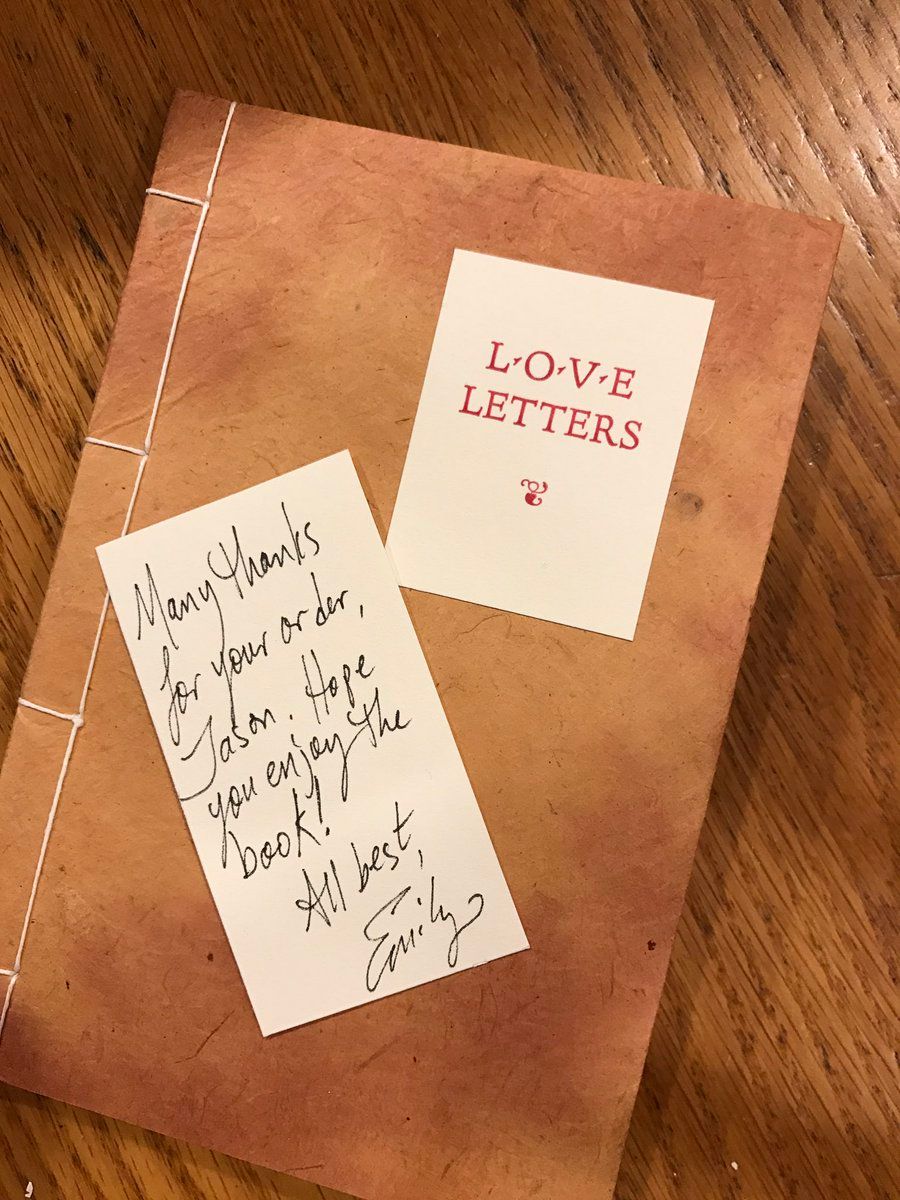 L·O·V·E
LETTERS
Many thanks
for your order,
Jason. Hope
you enjoy the
book!
All best,
Emily